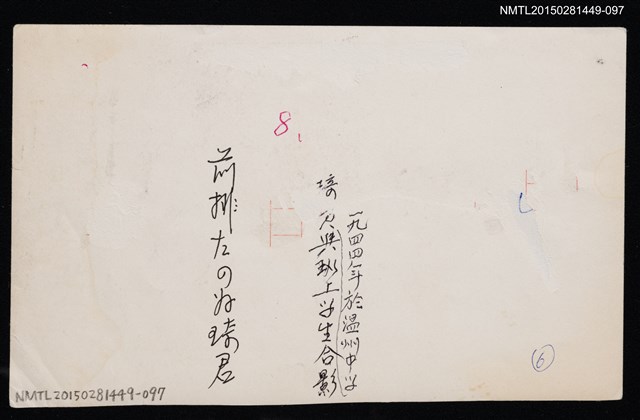 NMTL20150281449-097
8
一九四四年於溫州中学
琦君與班上学生合影
前排左四為琦君
6
NMTL20150281449-097